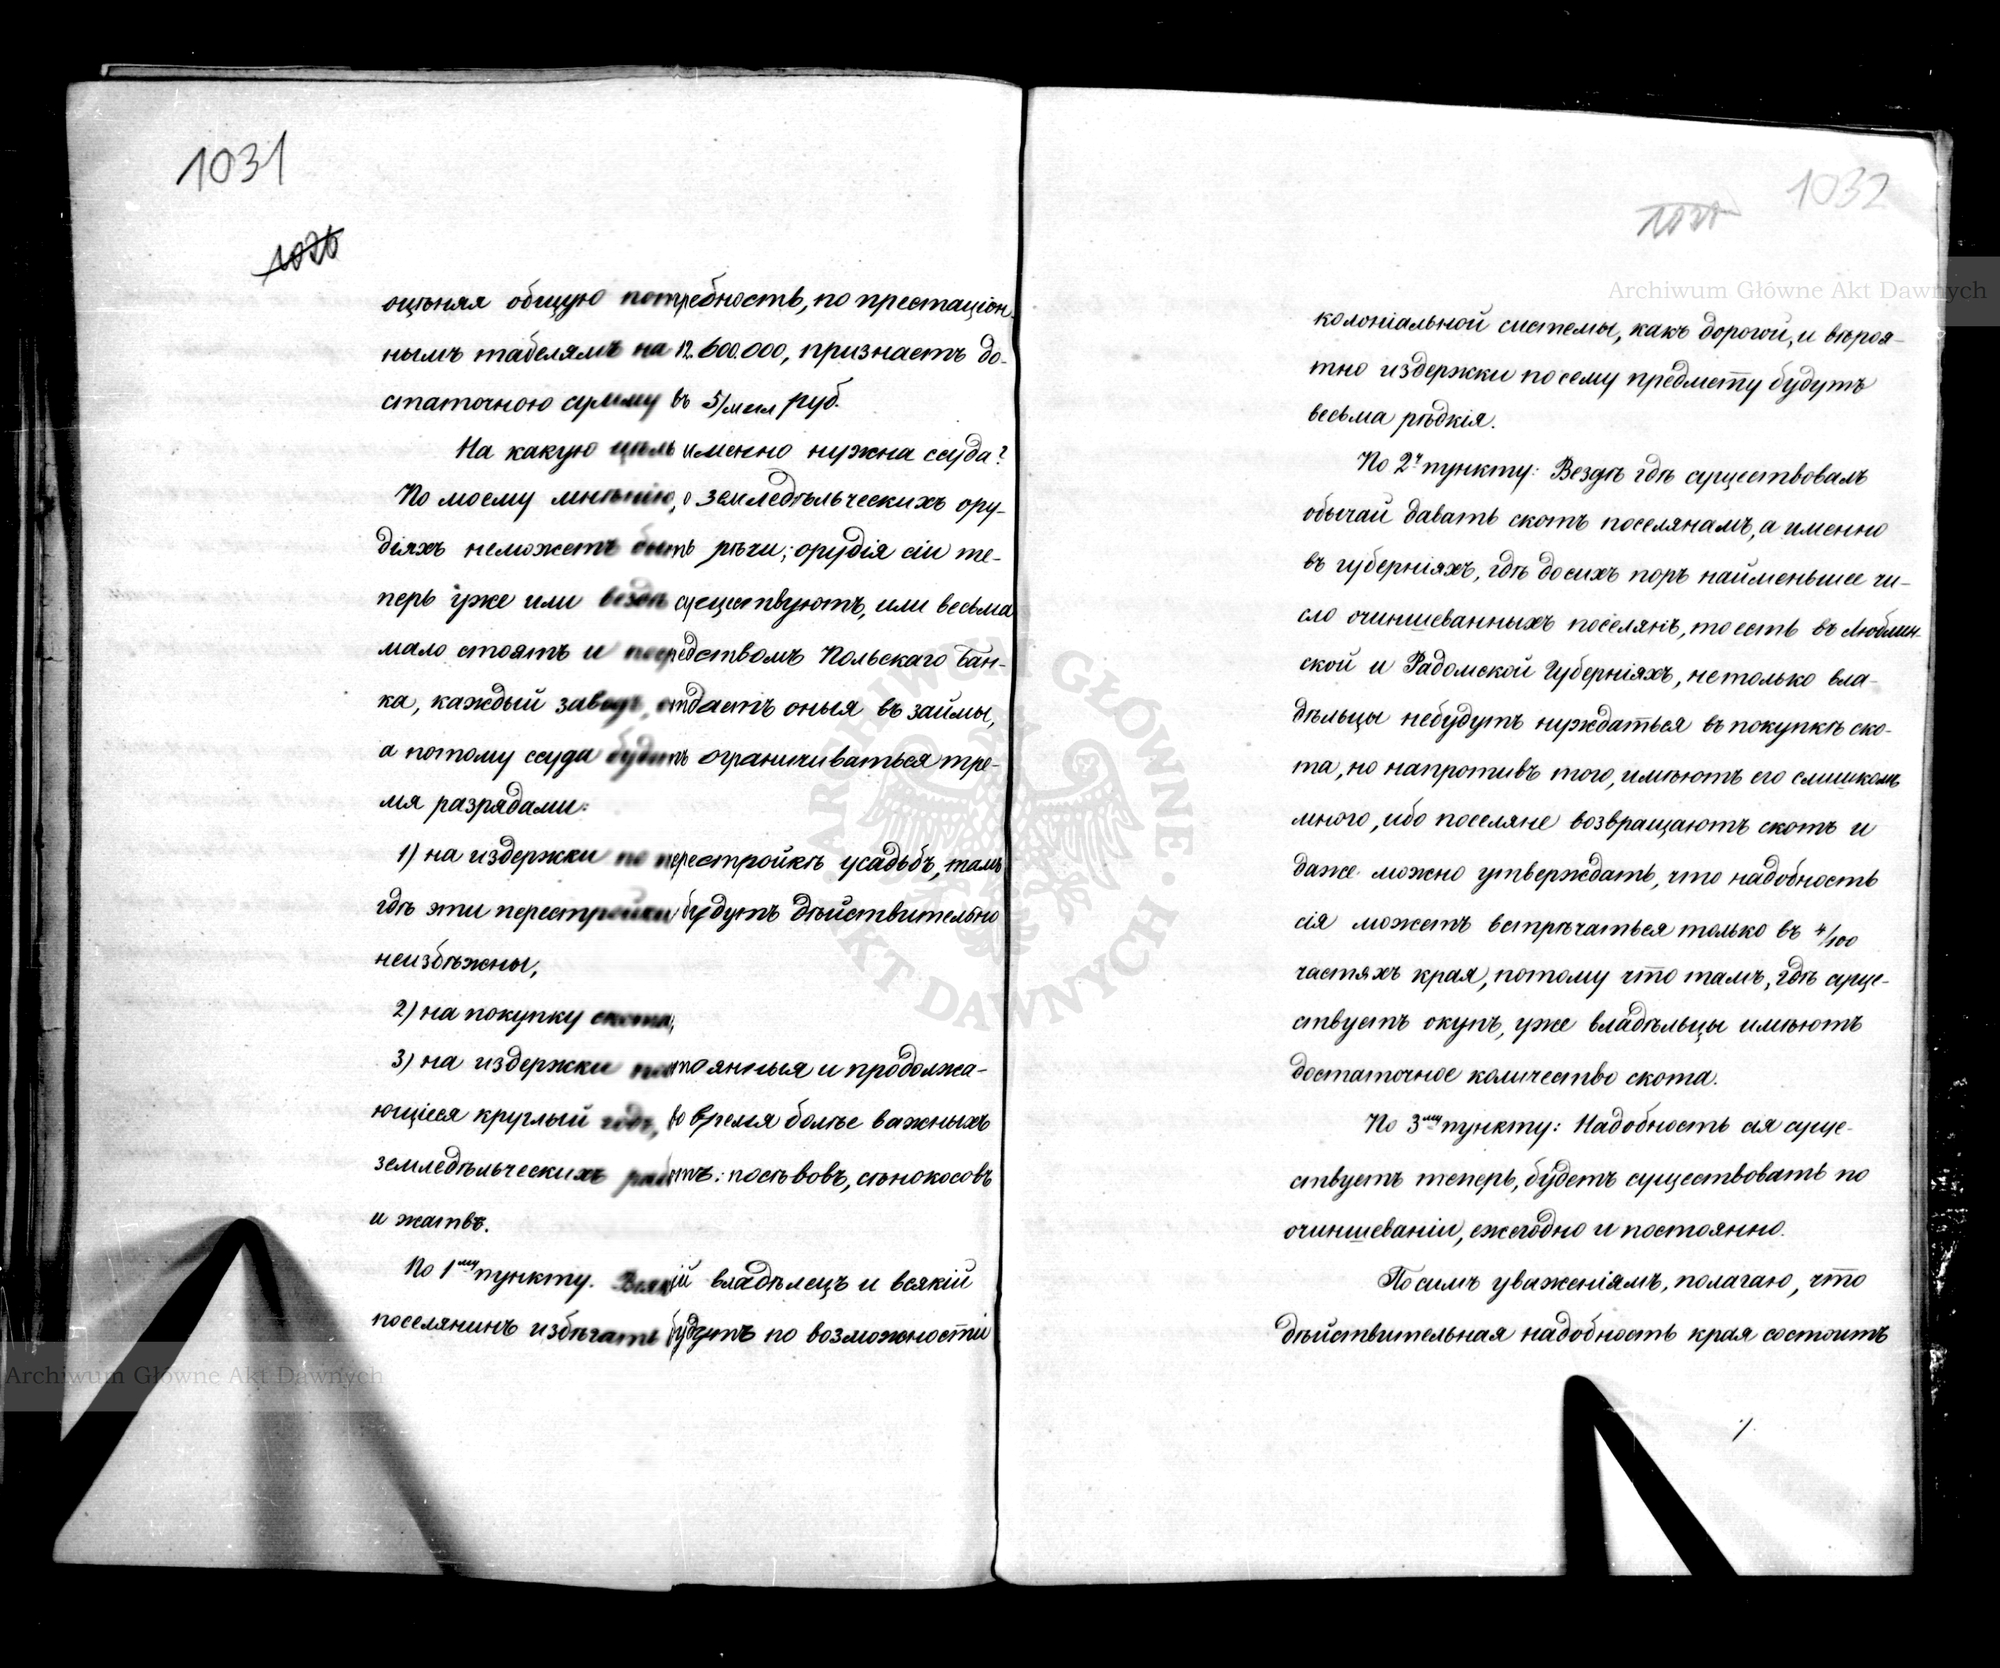 1031
1032
оцѣняя общую потребность, по престаціон-
нымъ табелямъ на 12.600.000, признаетъ до-
статочною сумму въ 5/мил руб.
На какую цѣль именно нужна ссуда?
По моему мнѣнію, о земледѣльческихъ ору-
діяхъ неможетъ быть рѣчи; орудія сіи те-
перь уже или вездѣ существуютъ, или весьма
мало стоятъ и посредствомъ Польскаго Бан-
ка, каждый заводъ, отдастъ оныя въ займы,
а потому ссуда будетъ ограничиваться тре-
мя разрядами:
1) на издержки по перестройкѣ усадьбъ, тамъ
гдѣ эти перестройки будутъ дѣйствительно
неизбѣжны,
2) на покупку скота,
3) на издержки постоянныя и продолжа-
ющіеся круглый годъ, во время болѣе важныхъ
земледѣльческихъ работъ: посѣвовъ, сѣнокосовъ
и жатвъ.
По 1му пункту. Всякій владѣлецъ и всякій
поселянинъ избѣгать будутъ по возможности
колоніальной системы, какъ дорогой, и вѣроя-
тно издержки по сему предмету будутъ
весьма рѣдкія.
По 2у пункту: Вездѣ гдѣ существовалъ
обычай давать скотъ поселянамъ, а именно
въ губерніяхъ, гдѣ досихъ поръ найменьшее чи-
сло очиншеванныхъ поселянъ, то есть въ Люблин-
ской и Радомской Губерніяхъ, нетолько вла-
дѣльцы небудутъ нуждаться въ покупкѣ ско-
та, но напротивъ того, имѣютъ его слишкомъ
много, ибо поселяне возвращаютъ скотъ и
даже можно утверждать, что надобность
сія можетъ встрѣчаться только въ 4/100
частяхъ края, потому что тамъ, гдѣ суще-
ствуетъ окупъ, уже владѣльцы имѣютъ
достаточное количество скота.
По 3му пункту: Надобность сія суще-
ствуетъ теперь, будетъ существовать по
очиншеваніи, ежегодно и постоянно.
По симъ уваженіямъ, полагаю, что
дѣйствительная надобность края состоитъ
./.
Archiwum Główne Akt Dawnych
Archiwum Główne Akt Dawnych
ARCHIWUM GŁÓWNE AKT DAWNYCH